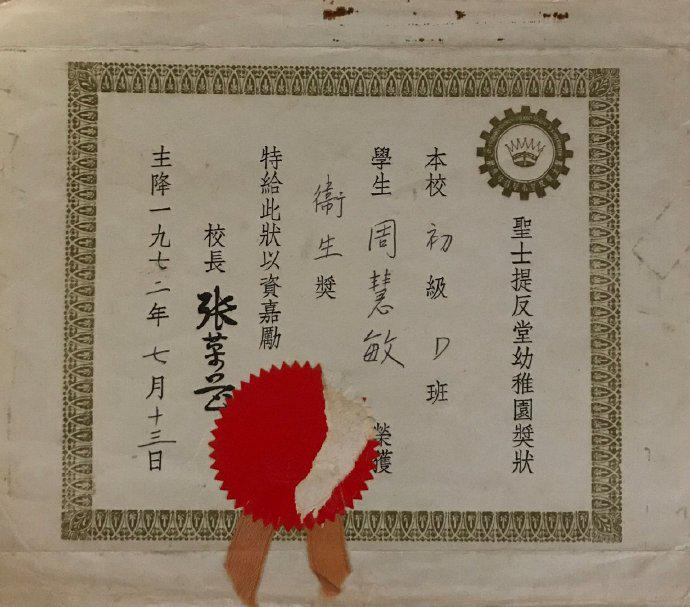 聖士提反堂幼稚園獎狀
本校初級D班
學生周慧敏榮獲
衞生獎
特給此狀以資嘉勵
校長
主降一九七二年七月十三日